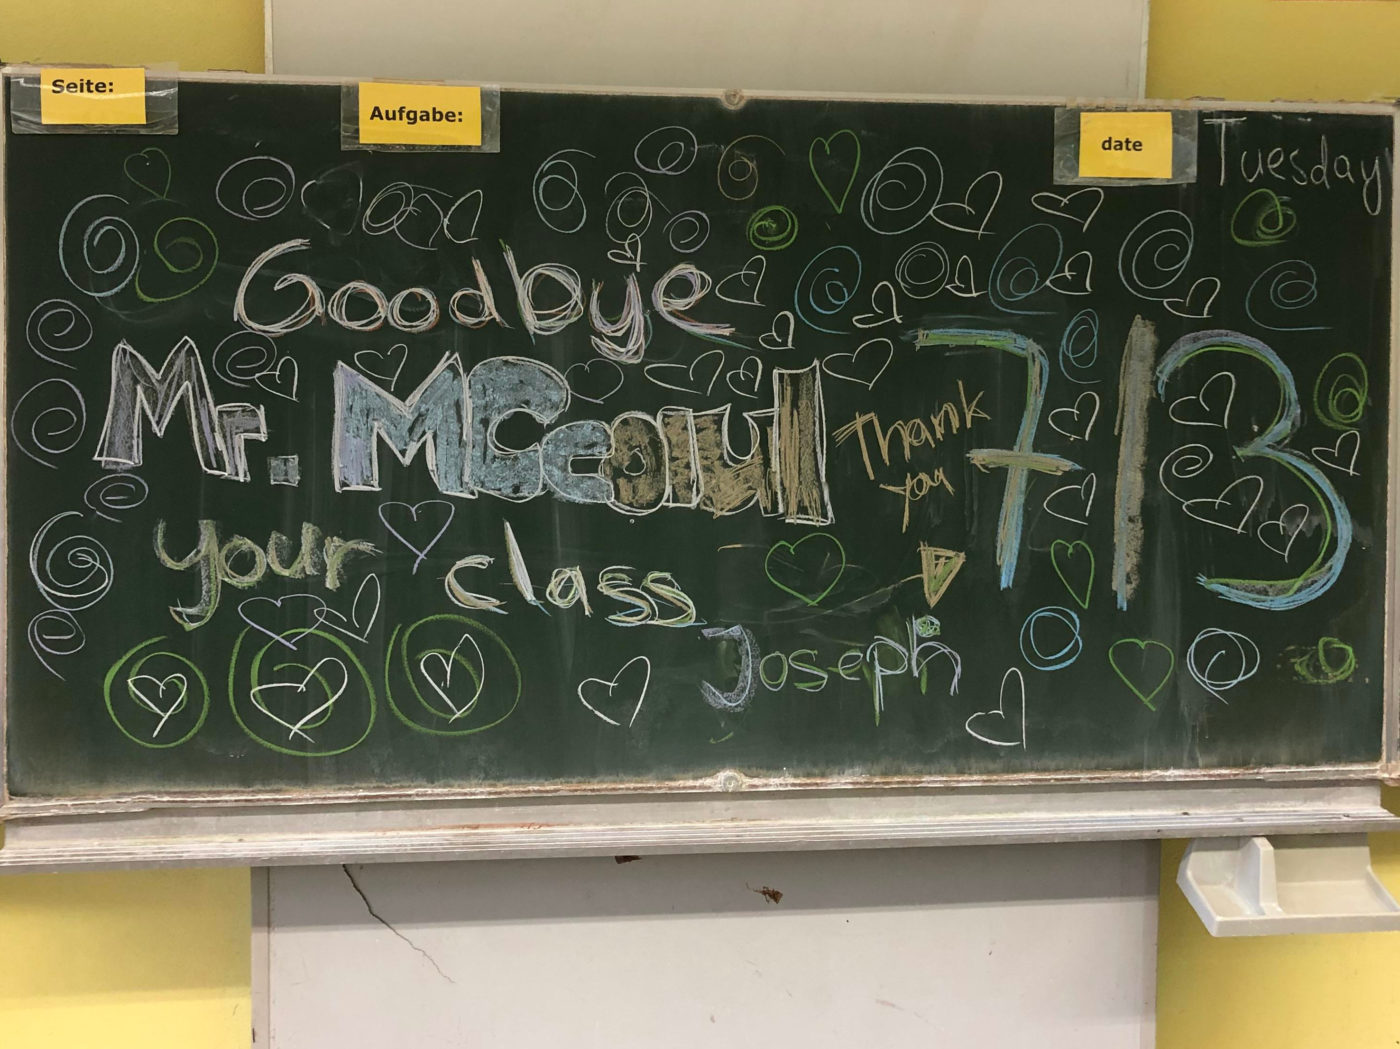 Seite:
Aufgabe:
date
Tuesday
Goodbye
Mr. McCaul
Thank
you
7/3
your class
Joseph